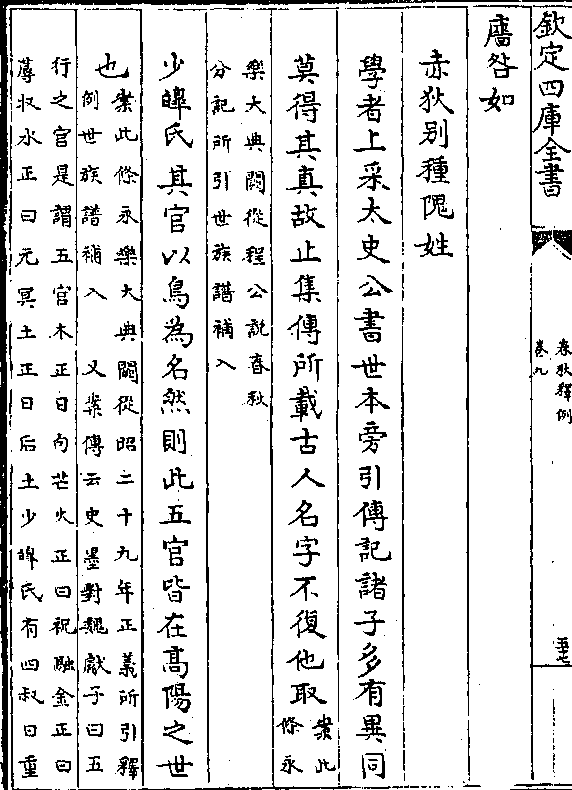 欽定四庫全書
春秋釋例
卷九
五十七
廧咎如
赤狄别種隗姓
學者上采太史公書世本旁引傳記諸子多有異同
莫得其真故止集傳所載古人名字不復他取案此
條永
樂大典闕從程公説春秋
分記所引世族譜補入
少皥氏其官以鳥為名然則此五官皆在高陽之世
也案此條永樂大典闕從昭二十九年正義所引釋
例世族譜補入 又案傳云史墨對魏獻子曰五
行之官是謂五官木正曰句芒火正曰祝融金正曰
蓐收水正曰元冥土正曰后土少皥氏有四叔曰重